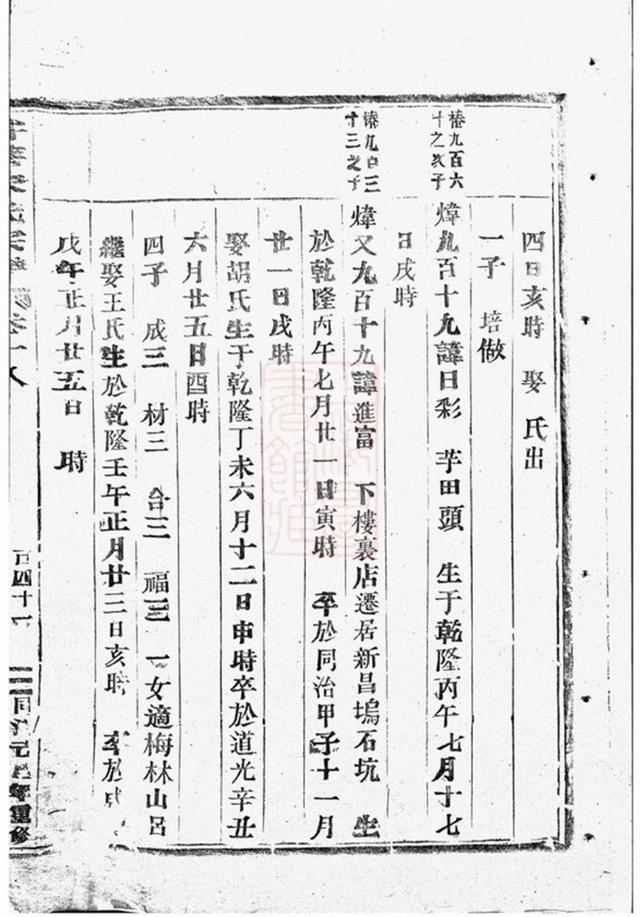 四日亥時　娶　氏出
一子　培做
椿九百六
十之次子
煒九百十九諱日彩　芋田頭　生于乾隆丙午七月十七
日戌時
椿九百三
十三之子
煒又九百十九諱進富　下樓裏店遷居新昌塢石坑　生
於乾隆丙午七月廿一日寅時　卒於同治甲子十一月
廿一日戌時
娶胡氏生于乾隆丁未六月十二日申時卒於道光辛丑
六月廿五日酉時
四子　成三　材三　合三　福三　一女適梅林山呂
繼娶王氏生於乾隆壬午正月廿三日亥時　卒於咸
戊午正月廿五日　時
卷十八
百四十一
同治元年重修